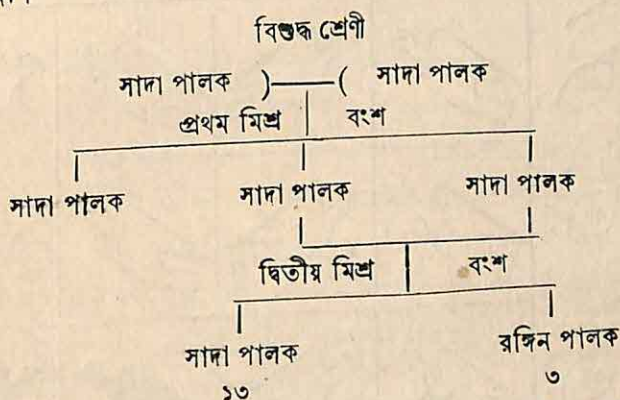 বিশুদ্ধ শ্রেণী
সাদা পালক )—( সাদা পালক
প্রথম মিশ্র বংশ
সাদা পালক সাদা পালক সাদা পালক
দ্বিতীয় মিশ্র বংশ
সাদা পালক রঙ্গিন পালক
১৩ ৩